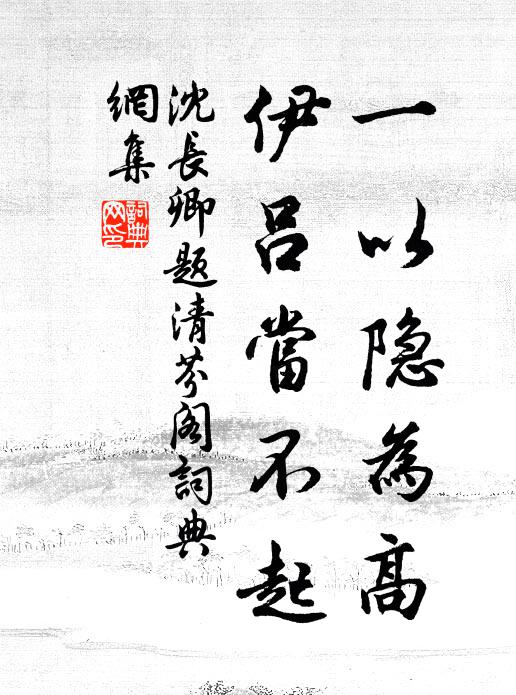 一以隐為高
伊吕當不起
沈長卿題清芬阁詞典
網集
詞典
网印